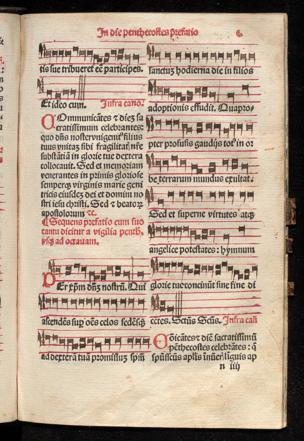 In die penthecostes prefatio
tis sue tribueret eē participes.
Et ideo cum. Infra canoī.
Cōmunicātes ⁊ diē sa
cratissimum celebrantes:
quo dn̄s noster vnigenitꝰ filius
tuus vnitā sibi fragilitatꝭ nr̄e
substātiā in glorie tue dextera
collocauit. Sed et memoriam
venerantes in primis gloriose
semperqꝫ virginis marie geni
tricis eiusdē dei et domini no
stri iesu christi. Sed ⁊ beatorū
apostolorum ⁊c.
Sequens prefatio cum suo
cantu dicitur a vigilia penth.
vsqꝫ ad octauam.
Per xp̄m dn̄z nostrū. Qui
ascendēs suꝑ oēs celos sedēsqꝫ
ad dexterā tuā promissuꝫ spm̄
sanctuꝫ hodierna die in filios
adoptionis effudit. Quapro-
pter profusis gaudijs totꝰ in or
be terrarum mundus exultat.
Sed et superne virtutes atqꝫ
angelice potestates: hymnum
glorie tue concinūt sine fine di
cētes. Sctūs Sctūs. Infra canō
Cōicātes: diē sacratissimū
pēthecostes celebrātes: q̄
spūsscūs apl̄is īnuēr̄ līguis ap
n iiij